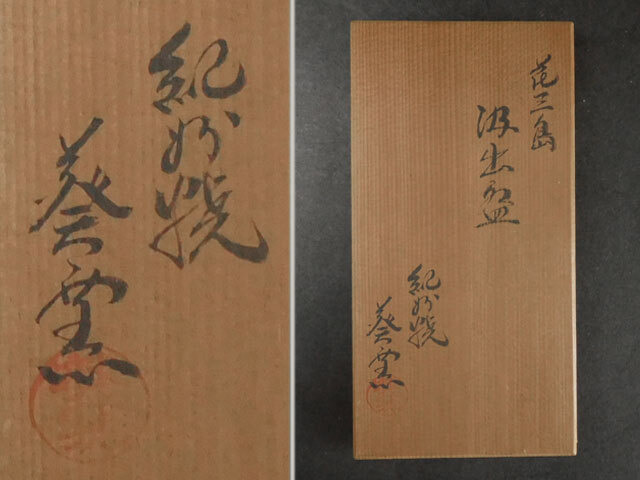 紀州焼
葵窯
花三島
汲出盌
紀州焼
葵窯